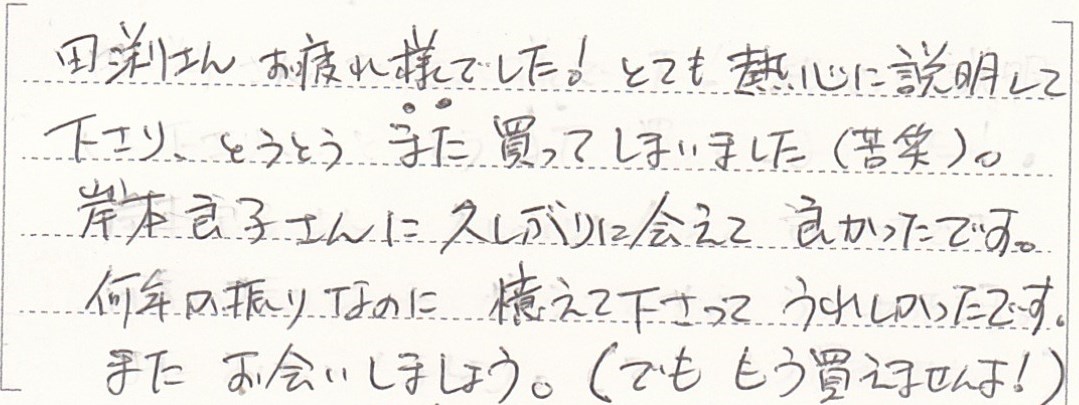 田渕さん お疲れ様でした! とても 熱心に説明して
下さり、とうとう また 買ってしまいました(苦笑)。
岸本良子さんに 久しぶりに会えて 良かったです。
何年の振りなのに 憶えて下さって うれしかったです。
また お会いしましょう。(でも もう買えませんよ!)